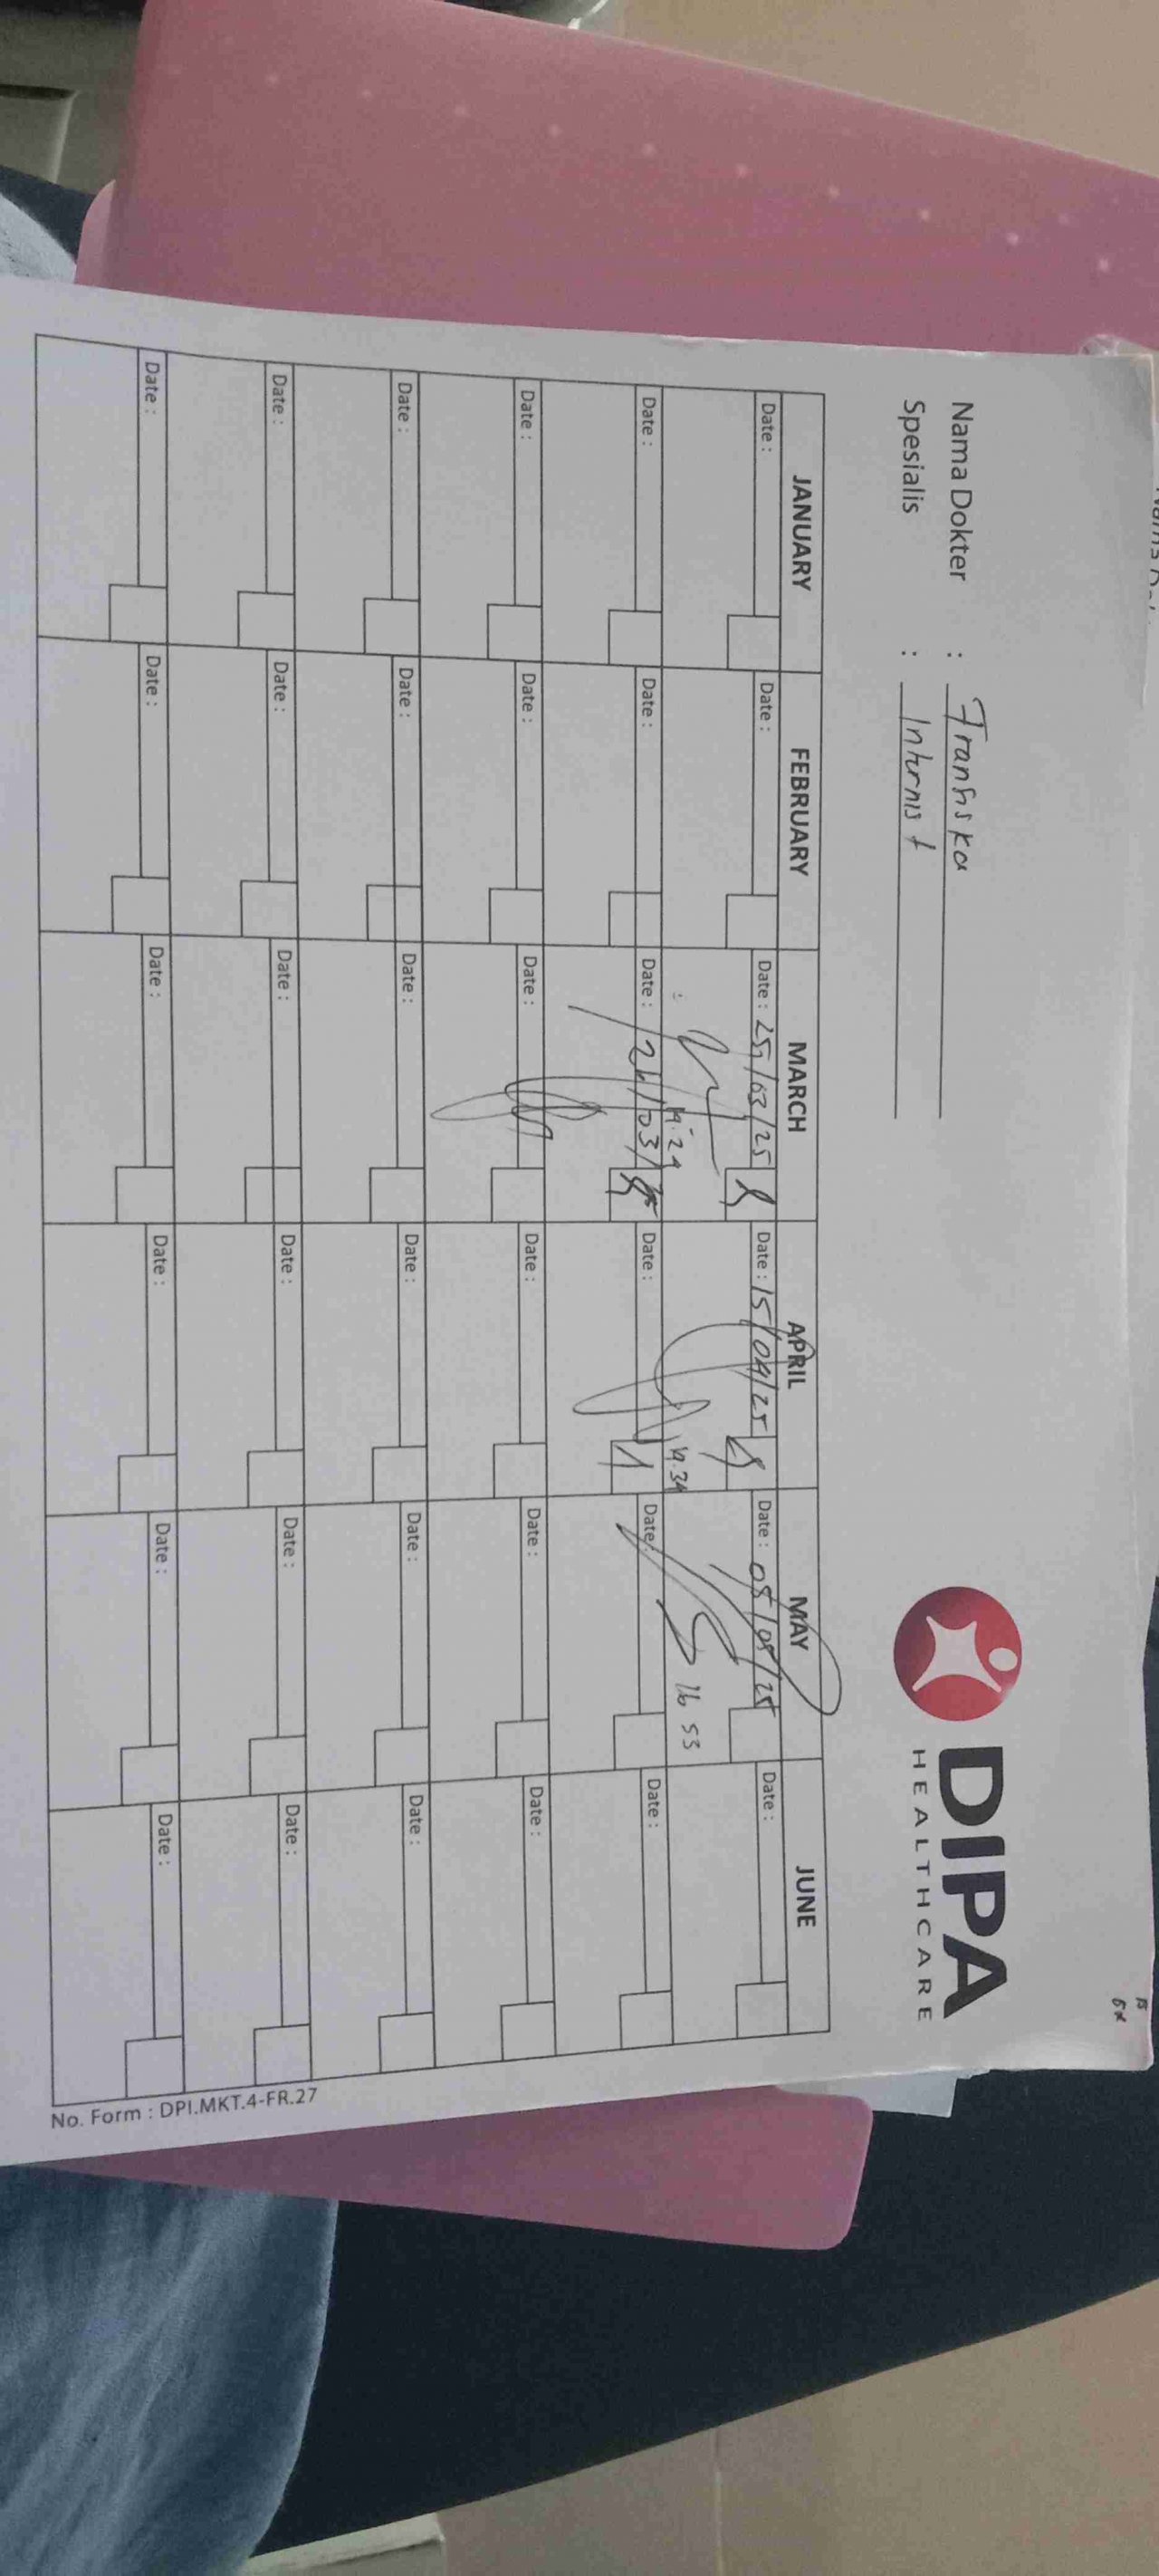 DIPA
HEALTHCARE
Nama Dokter : Fransiska
Spesialis : Internist
JANUARY FEBRUARY MARCH APRIL MAY JUNE
Date : Date : Date : 25/03/25 Date : 15/04/25 Date : 08/05/25 Date :
19.34 16 53
Date : Date : Date : Date : Date : Date :
Date : Date : Date : Date : Date : Date :
Date : Date : Date : Date : Date : Date :
Date : Date : Date : Date : Date : Date :
Date : Date : Date : Date : Date : Date :
No. Form : DPI.MKT.4-FR.27